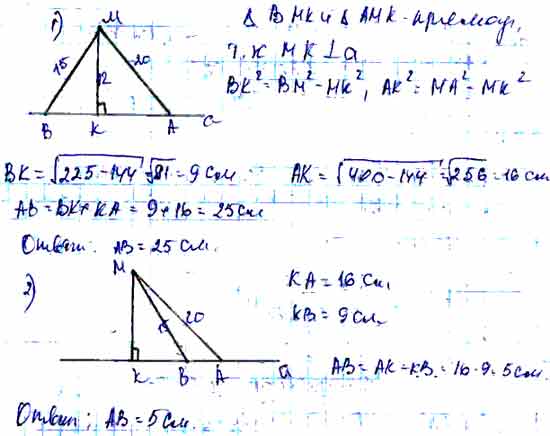 1)
M
15
20
12
B K A a
Δ BMK и Δ AMK - прямоуг,
т.к MK⊥a
BK² = BM² - MK², AK² = MA² - MK²
BK = √225-144 √81 = 9 см. AK = √400-144 = √256 = 16 см
AB = BK + KA = 9 + 16 = 25 см
Ответ: AB = 25 см.
2)
M
15
20
K B A a
KA = 16 см,
KB = 9 см,
AB = AK - KB = 16 - 9 = 5 см.
Ответ: AB = 5 см.